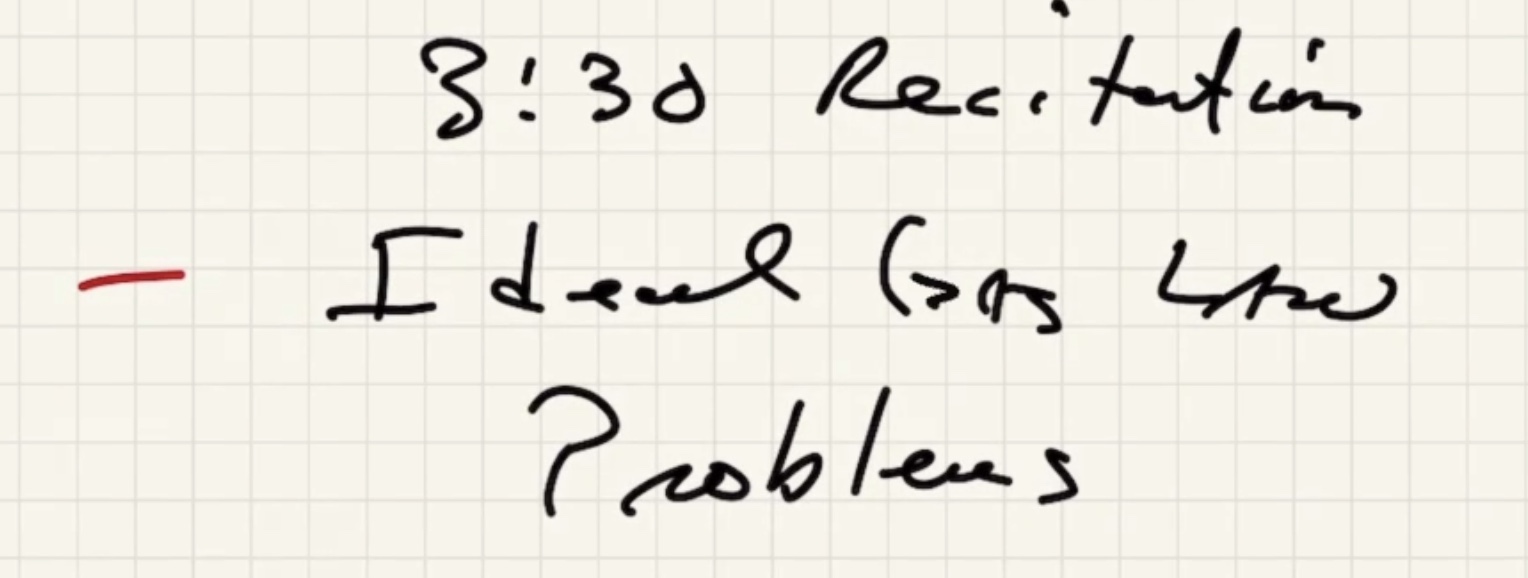 3:30 Recitation
- Ideal Gas Law
Problems